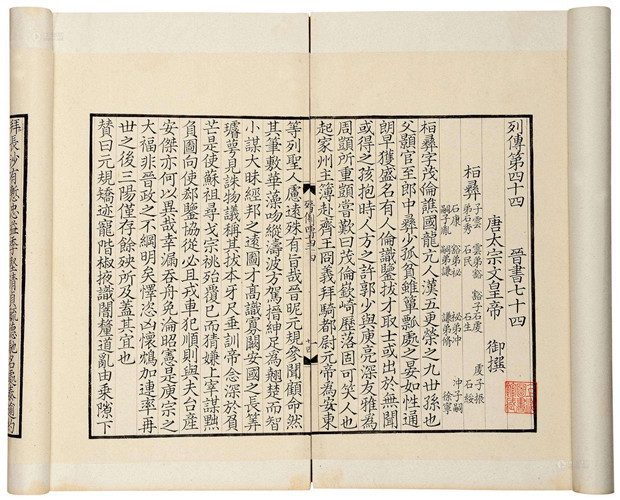 列傳第四十四　晉書七十四
唐太宗文皇帝　御撰
桓彝
子雲　雲弟豁　豁子石虔　虔子振
弟石秀　石民　石生　石綏
石康　豁弟祕　祕弟沖　沖子嗣
嗣子胤　嗣弟謙　謙弟脩　徐寧
桓彝字茂倫譙國龍亢人漢五更榮之九世孫也
父顥官至郎中彝少孤貧雖簞瓢處之晏如性通
朗早獲盛名有人倫識鑒拔才取士或出於無聞
或得之孩抱時人方之許郭少與庾亮深交雅為
周顗所重顗嘗歎曰茂倫嶔崎歷落固可笑人也
起家州主簿赴齊王冏義拜騎都尉元帝為安東
等列聖人慮遠殊有旨哉晉昵元規參聞顧命然
其筆敷華藻吻縱濤波方駕搢紳足為翹楚而智
小謀大昧經邦之遠圖才高識寡闕安國之長筭
璿萼見誅物議稱其拔本牙尺垂訓帝念深於負
芒是使蘇祖尋戈宗祧殆覆已而猜嫌上宰謀黜
負圖向使郄鑒協從必且戎車犯順則與夫台產
安傑亦何以異哉幸漏吞舟免淪昭憲是庾宗之
大福非晉政之不綱明矣懌恣凶懷鴆加連率再
世之後三陽僅存餘殃所及蓋其宜也
贊曰元規矯迹寵階椒掖識闇釐道亂由乘隙下
拜長沙有慙忠益季堅清貞毓德馳名處泰逾約